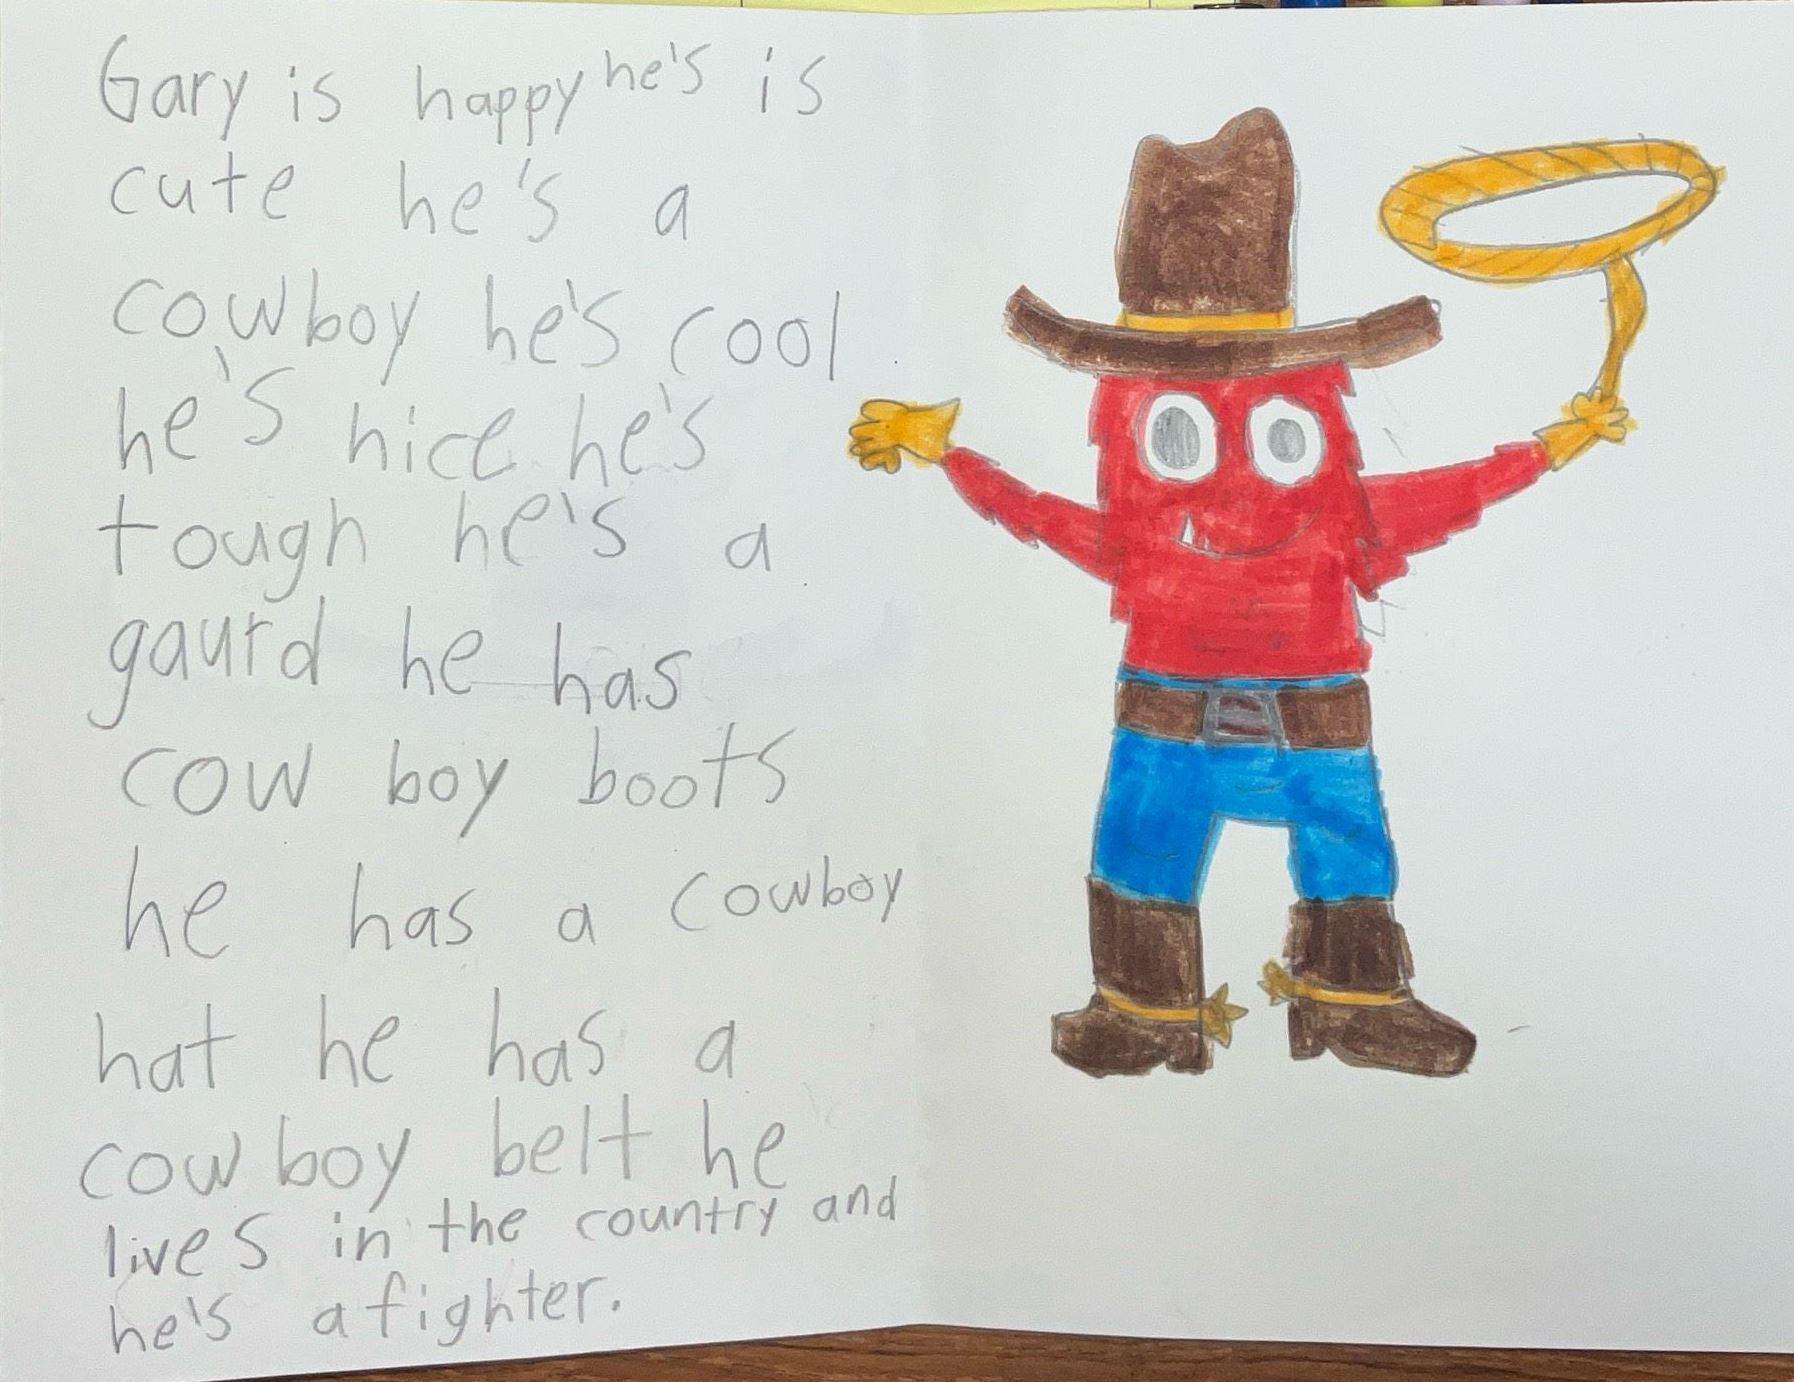 Gary is happy he's is
cute he's a
cowboy he's cool
he's nice he's
tough he's a
gaurd he has
cow boy boots
he has a cowboy
hat he has a
cow boy belt he
lives in the country and
he's a fighter.